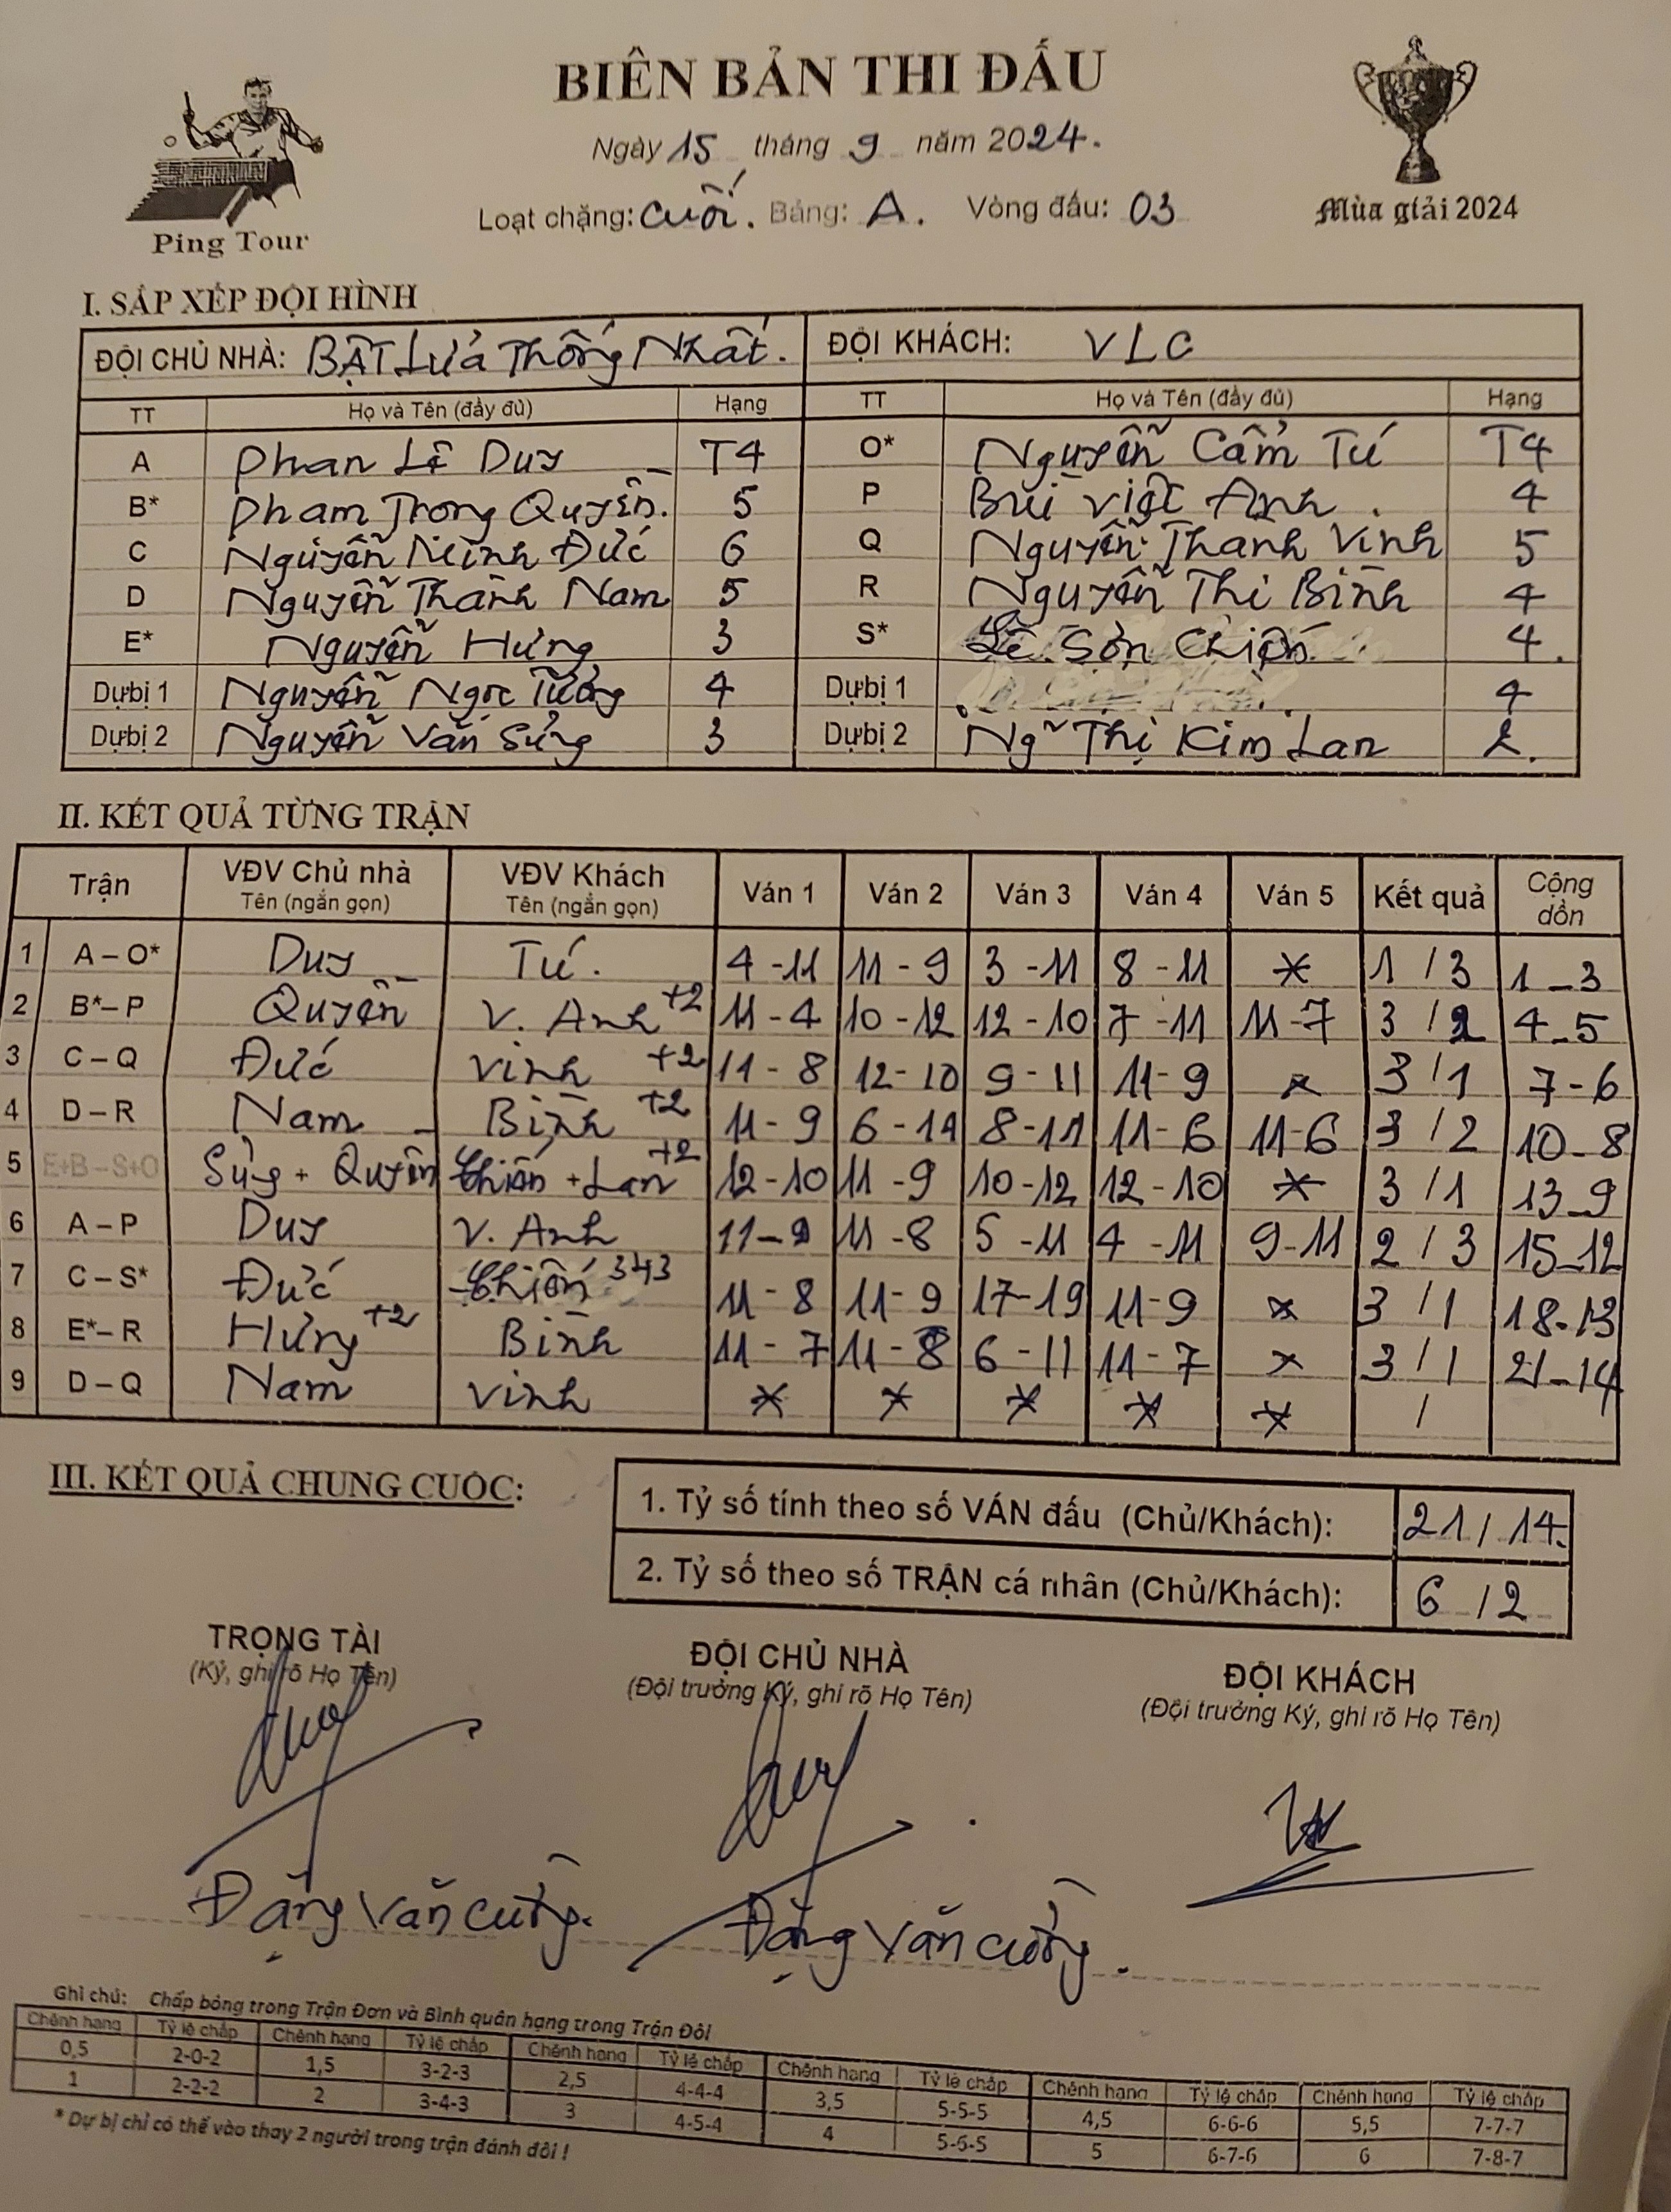 BIÊN BẢN THI ĐẤU
Ngày 15 tháng 9 năm 2024.
Loạt chặng: Cuối. Bảng: A. Vòng đấu: 03
Ping Tour
Mùa giải 2024
I. SẮP XẾP ĐỘI HÌNH
ĐỘI CHỦ NHÀ: BẬT Lửa Thống Nhất. ĐỘI KHÁCH: VLC
TT Họ và Tên (đầy đủ) Hạng TT Họ và Tên (đầy đủ) Hạng
A Phan Lê Duy T4 O* Nguyễn Cẩm Tú T4
B* Phạm Trọng Quyền. 5 P Bùi Việt Anh. 4
C Nguyễn Minh Đức 6 Q Nguyễn Thanh Vinh 5
D Nguyễn Thành Nam 5 R Nguyễn Thị Bình 4
E* Nguyễn Hưng 3 S* Lê Sơn Chiến 4.
Dự bị 1 Nguyễn Ngọc Tưởng 4 Dự bị 1 4
Dự bị 2 Nguyễn Văn Sửng 3 Dự bị 2 Ng~ Thị Kim Lan 2.
II. KẾT QUẢ TỪNG TRẬN
Trận VĐV Chủ nhà VĐV Khách Ván 1 Ván 2 Ván 3 Ván 4 Ván 5 Kết quả Cộng dồn
Tên (ngắn gọn) Tên (ngắn gọn)
1 A – O* Duy Tú. 4 - 11 11 - 9 3 - 11 8 - 11 * 1 / 3 1 - 3
2 B* – P Quyền V. Anh +2 11 - 4 10 - 12 12 - 10 7 - 11 11 - 7 3 / 2 4 - 5
3 C – Q Đức Vinh +2 11 - 8 12 - 10 9 - 11 11 - 9 * 3 / 1 7 - 6
4 D – R Nam Bình +2 11 - 9 6 - 11 8 - 11 11 - 6 11 - 6 3 / 2 10 - 8
5 E+B – S+O Sửng + Quyền Chiến + Lan +2 12 - 10 11 - 9 10 - 12 12 - 10 * 3 / 1 13 - 9
6 A – P Duy V. Anh 11 - 9 11 - 8 5 - 11 4 - 11 9 - 11 2 / 3 15 - 12
7 C – S* Đức Chiến 343 11 - 8 11 - 9 17 - 19 11 - 9 * 3 / 1 18 - 13
8 E* – R Hưng +2 Bình 11 - 7 11 - 8 6 - 11 11 - 7 * 3 / 1 21 - 14
9 D – Q Nam Vinh * * * * * /
III. KẾT QUẢ CHUNG CUỘC:
1. Tỷ số tính theo số VÁN đấu (Chủ/Khách): 21 / 14.
2. Tỷ số theo số TRẬN cá nhân (Chủ/Khách): 6 / 2
TRỌNG TÀI ĐỘI CHỦ NHÀ ĐỘI KHÁCH
(Ký, ghi rõ Họ Tên) (Đội trưởng Ký, ghi rõ Họ Tên) (Đội trưởng Ký, ghi rõ Họ Tên)
Đặng Văn Cường. Đặng Văn Cường.
Ghi chú: Chấp bóng trong Trận Đơn và Bình quân hạng trong Trận Đôi
Chênh hạng Tỷ lệ chấp Chênh hạng Tỷ lệ chấp Chênh hạng Tỷ lệ chấp Chênh hạng Tỷ lệ chấp Chênh hạng Tỷ lệ chấp Chênh hạng Tỷ lệ chấp
0,5 2-0-2 1,5 3-2-3 2,5 4-4-4 3,5 5-5-5 4,5 6-6-6 5,5 7-7-7
1 2-2-2 2 3-4-3 3 4-5-4 4 5-6-5 5 6-7-6 6 7-8-7
* Dự bị chỉ có thể vào thay 2 người trong trận đánh đôi !